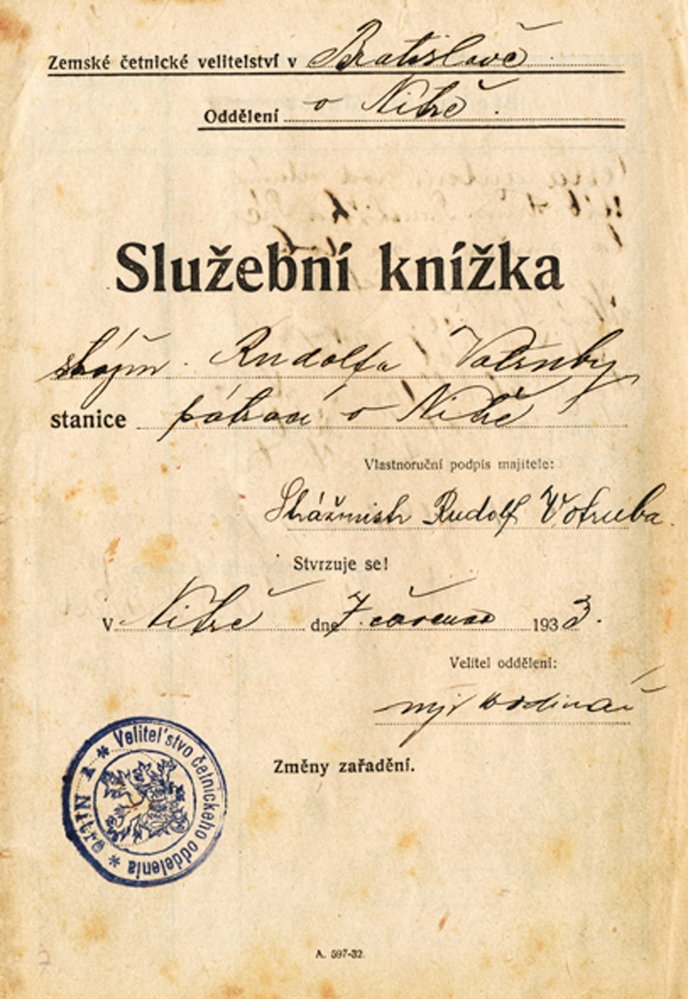 Zemské četnické velitelství v Bratislavě
Oddělení v Nitře.
Služební knížka
strážm. Rudolfa Votruby
stanice pátrací v Nitře
Vlastnoruční podpis majitele:
Strážmistr Rudolf Votruba.
Stvrzuje se!
V Nitře dne 7. července 1933.
Velitel oddělení:
Změny zařadění.
* Veliteľstvo četnického oddelenia * v Nitre
A. 597-32.